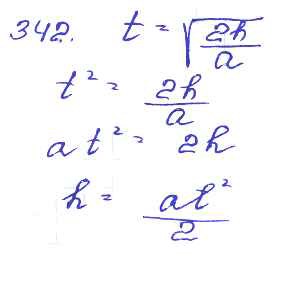 342. t = √(2h/a)
t² = 2h/a
at² = 2h
h = at²/2